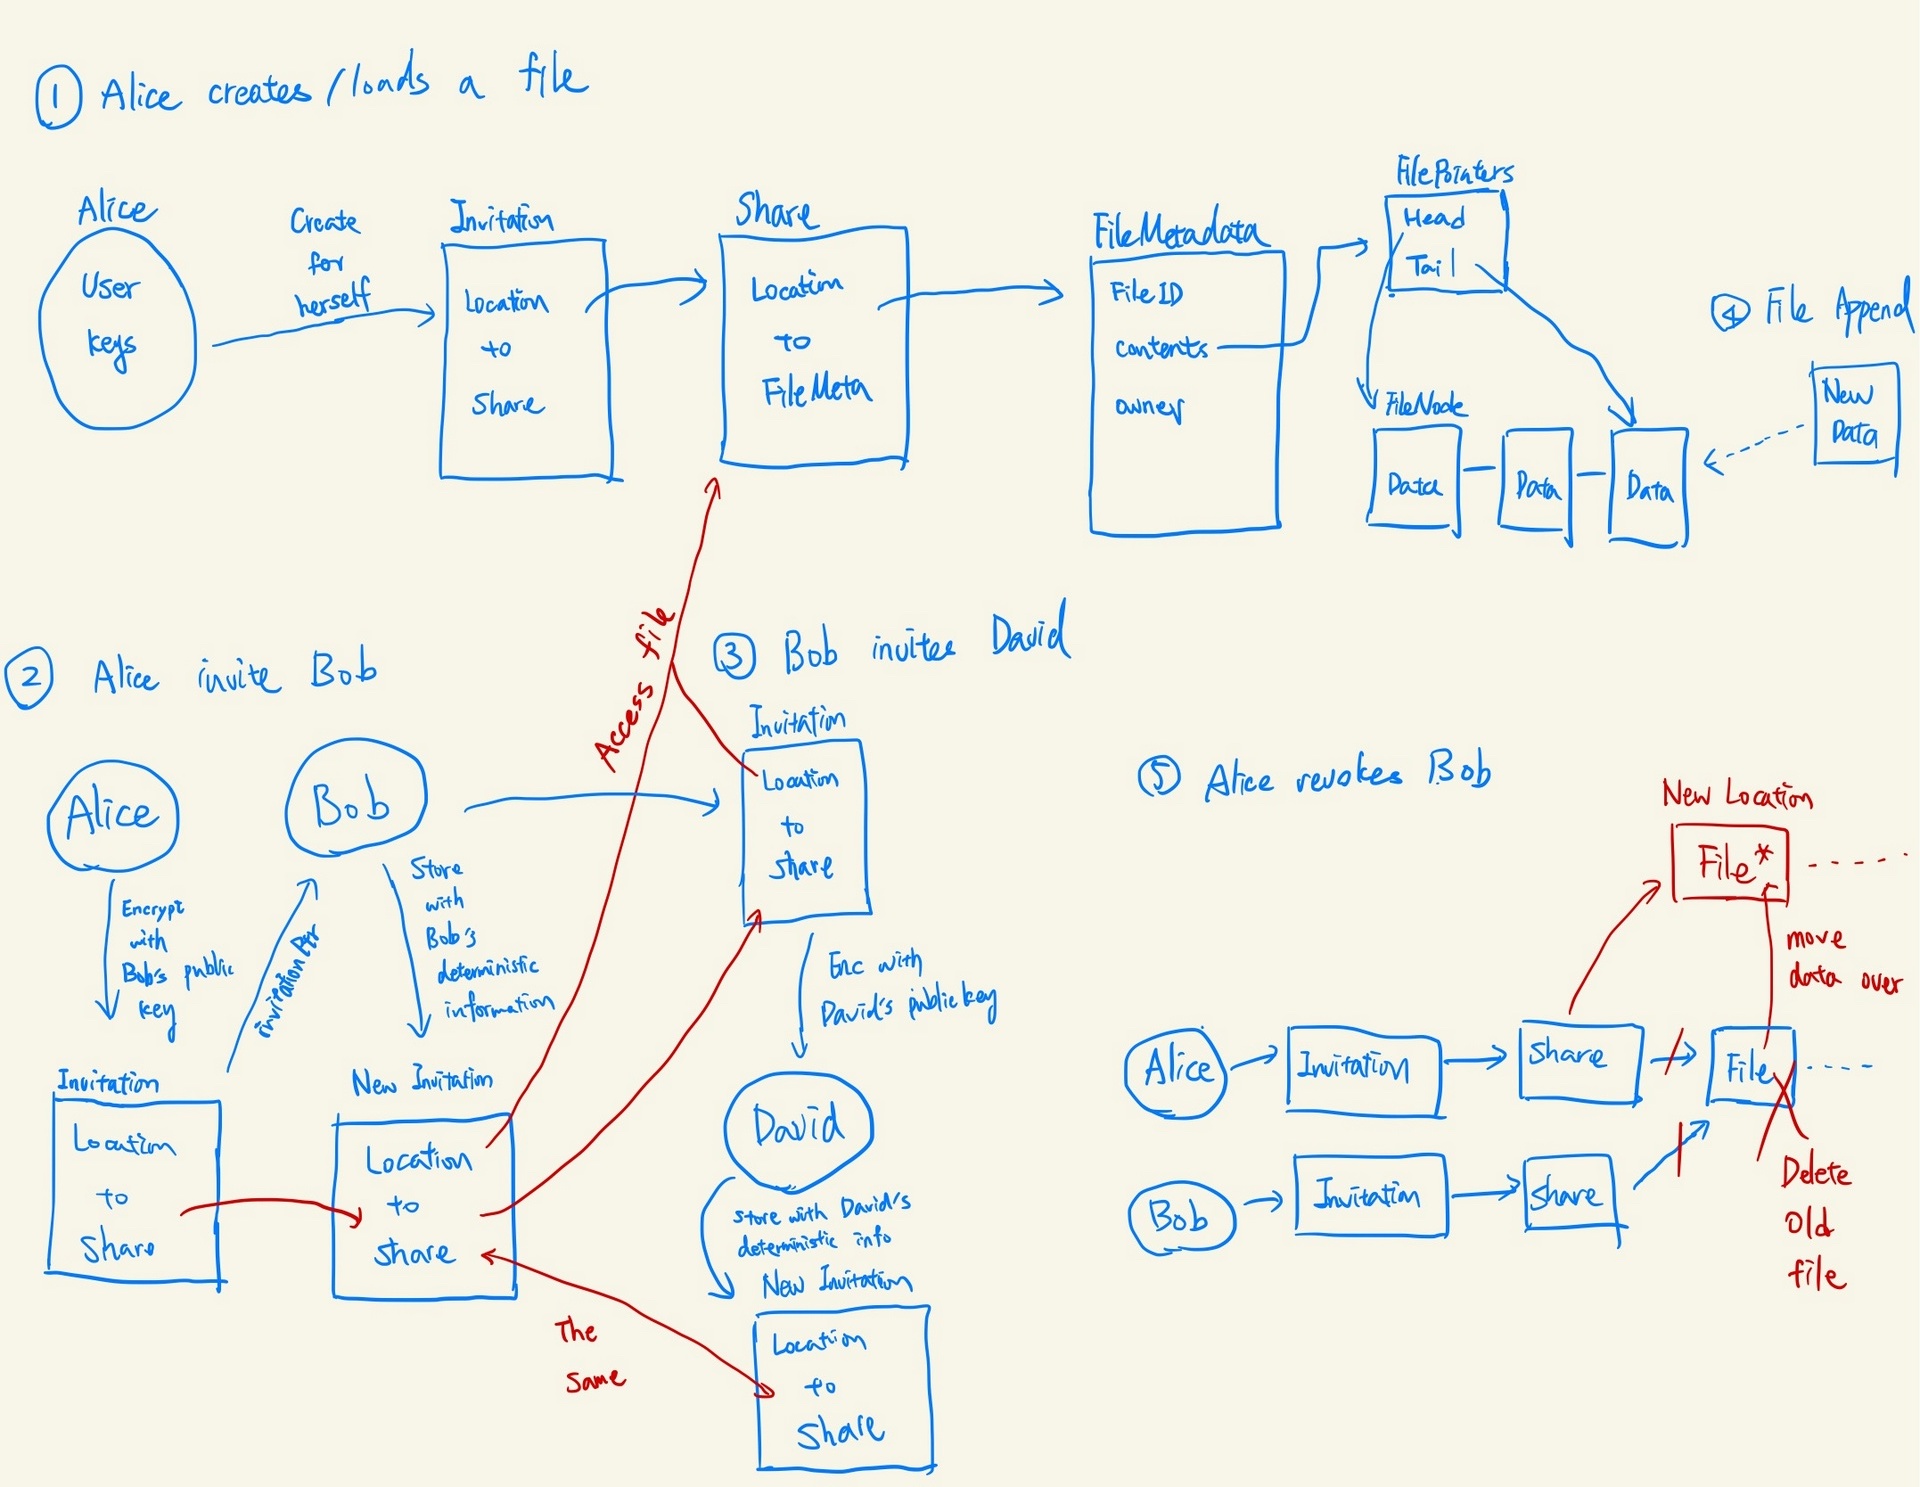 ① Alice creates/loads a file
Alice
User
keys
Create
for
herself
Invitation
Location
to
Share
Share
Location
to
FileMeta
FileMetadata
FileID
contents
owner
FilePointers
Head
Tail
FileNode
Data
Data
Data
④ File Append
New
Data
② Alice invite Bob
Alice
Encrypt
with
Bob's public
key
Invitation
Location
to
Share
invitationPtr
Bob
Store
with
Bob's
deterministic
information
New Invitation
Location
to
Share
Access file
The
Same
③ Bob invites David
Invitation
Location
to
Share
Enc with
David's public key
David
Store with David's
deterministic info
New Invitation
Location
to
Share
⑤ Alice revokes Bob
New Location
File*
move
data over
Alice
Invitation
Share
File
Bob
Invitation
Share
Delete
Old
file